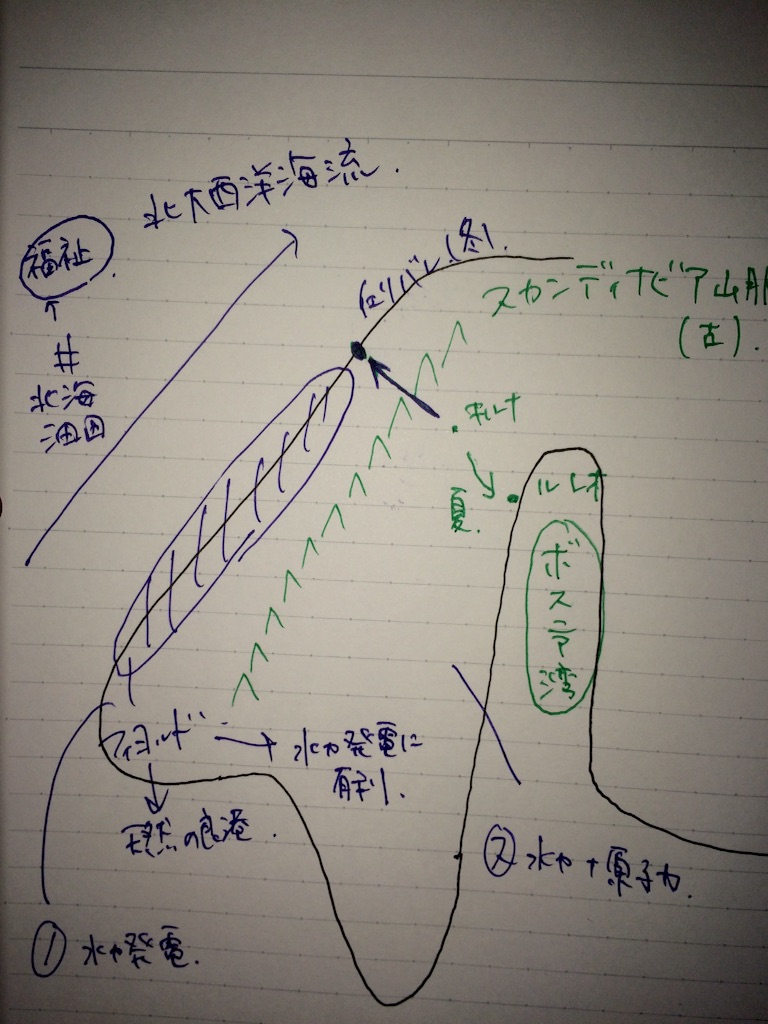 北大西洋海流.
福祉.
↑
井
北海
油田
(冬).
スカンディナビア山脈
(古).
キルナ
夏.
ルレオ
ボスニア湾
フィヨルド → 水力発電に
有利.
↓
天然の良港.
② 水力+原子力.
① 水力発電.